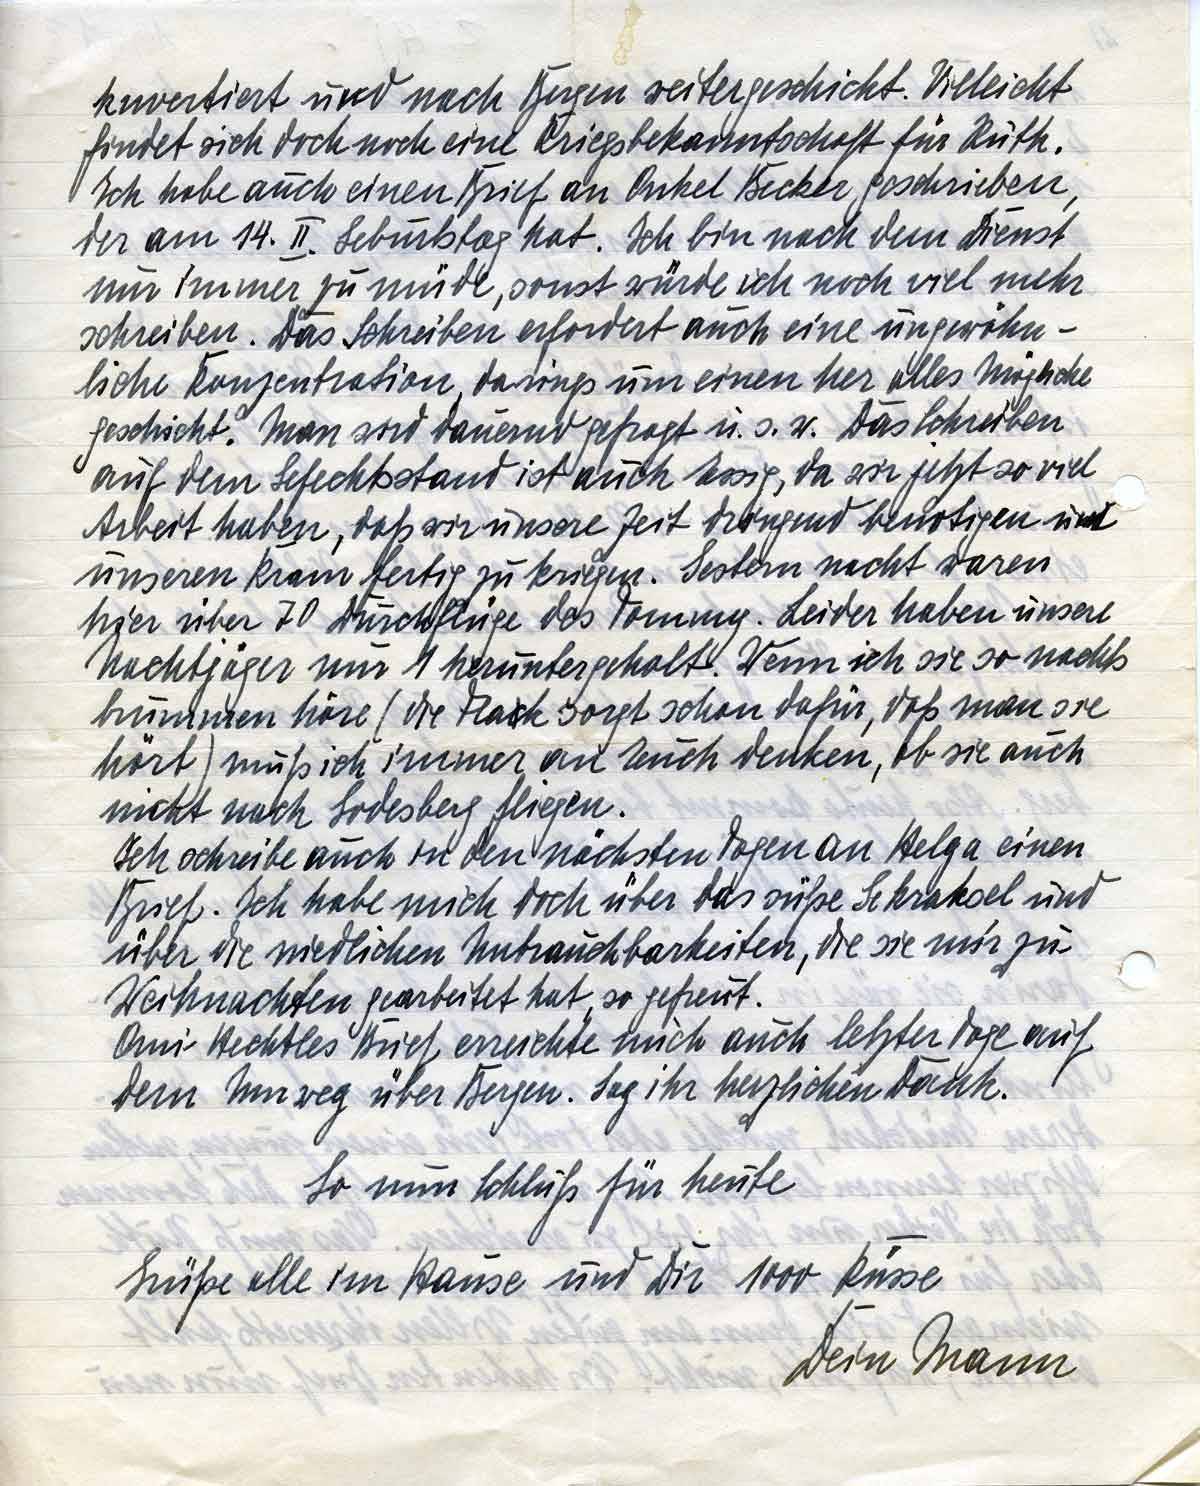 kuvertiert und nach Bergen weitergeschickt. Villeicht
findet sich doch noch eine Kriegsbekanntschaft für Ruth.
Ich habe auch einen Brief an Onkel Becker geschrieben,
der am 14. II. Geburtstag hat. Ich bin nach dem Dienst
nur immer zu müde, sonst würde ich noch viel mehr
schreiben. Das Schreiben erfordert auch eine ungewöhn-
liche Konzentration, da rings um einen her alles Mögliche
geschieht. Man wird dauernd gefragt u. s. w. Das Schreiben
auf dem Gefechtsstand ist auch Essig, da wir jetzt so viel
Arbeit haben, daß wir unsere Zeit dringend benötigen um
unseren Kram fertig zu kriegen. Gestern nacht waren
hier über 70 Durchflüge des Tommy. Leider haben unsere
Nachtjäger nur 1 heruntergeholt. Wenn ich sie so nachts
brummen höre (die Flak sorgt schon dafür, daß man sie
hört) muß ich immer an Euch denken, ob sie auch
nicht nach Godesberg fliegen.
Ich schreibe auch in den nächsten Tagen an Helga einen
Brief. Ich habe mich doch über das süße Gekraksel und
über die niedlichen Unbrauchbarkeiten, die sie mir zu
Weihnachten gearbeitet hat, so gefreut.
Omi Hechtles Brief erreichte mich auch letzter Tage auf
dem Umweg über Bergen. Sag ihr herzlichen Dank.
So nun Schluß für heute
Grüße alle im Hause und Dir 1000 Küsse
Dein Mann